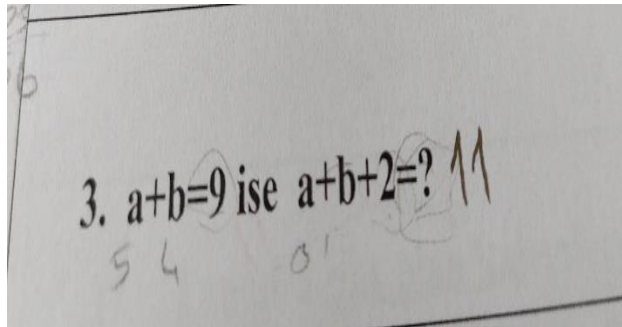 3. a+b=9 ise a+b+2=? 11
5 4